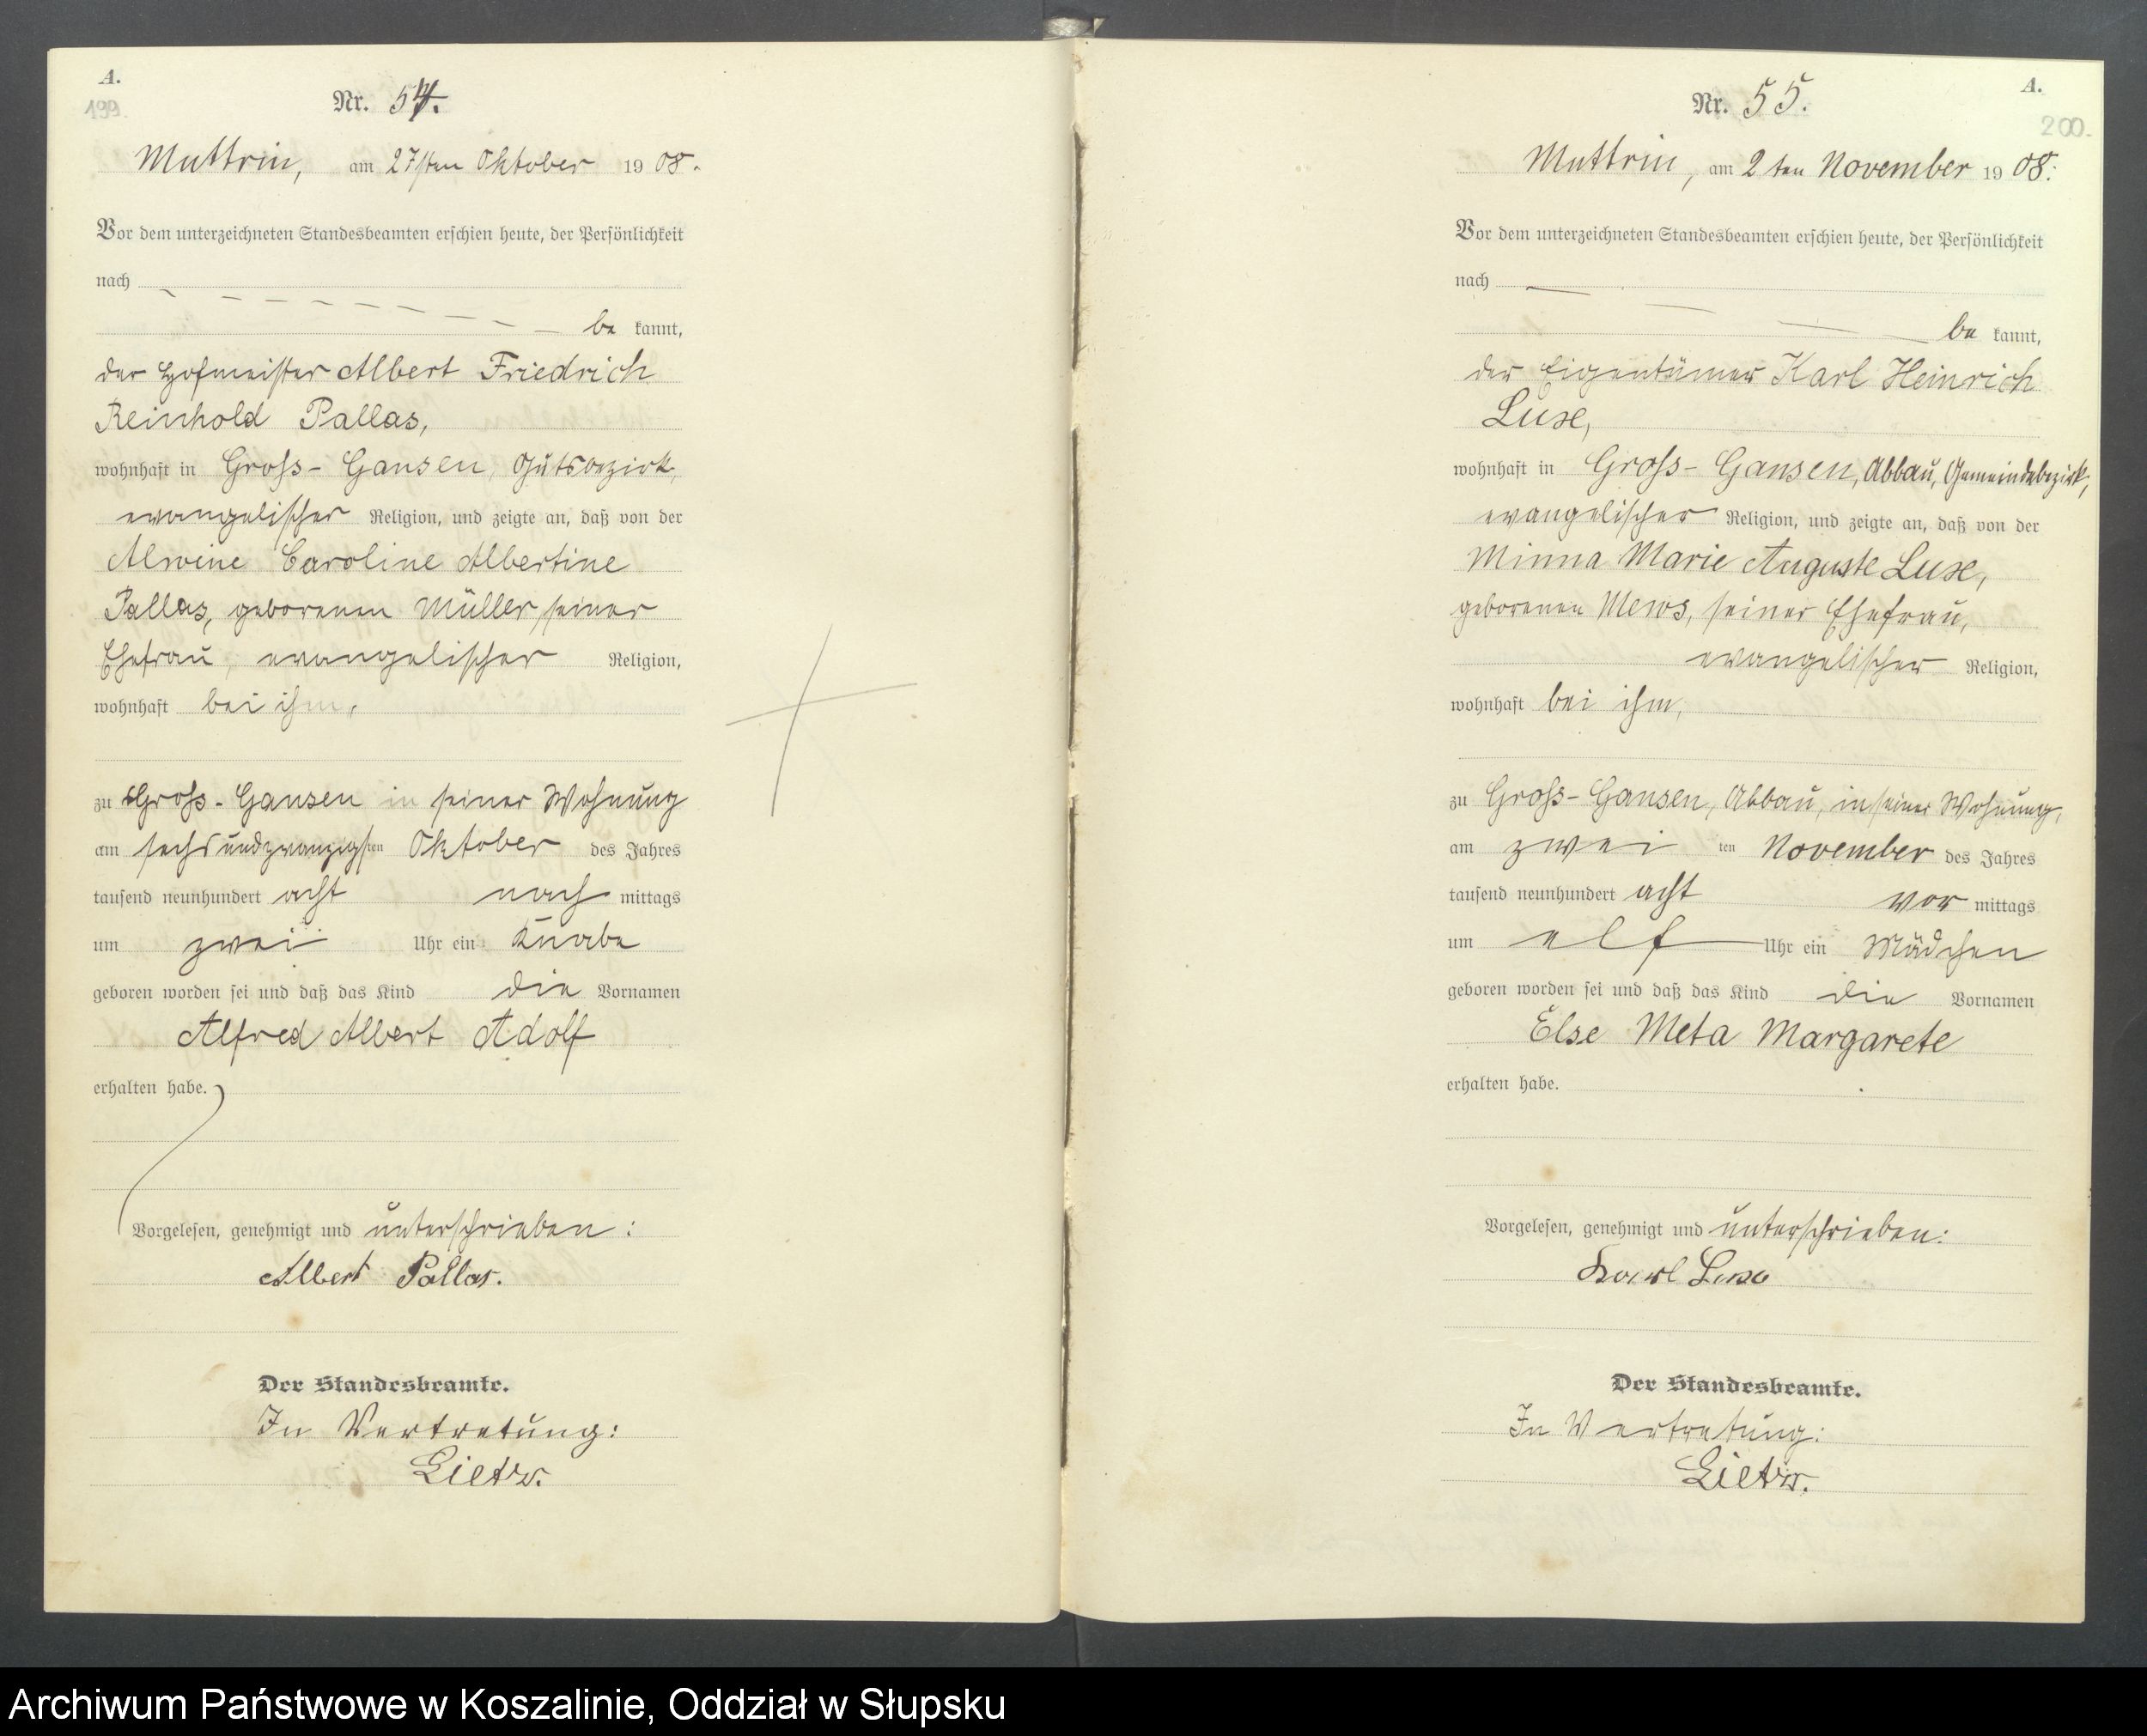 A.
199.
Nr. 54.
Muttrin, am 27sten Oktober 1908.
Vor dem unterzeichneten Standesbeamten erschien heute, der Persönlichkeit
nach
be kannt,
der Hofmeister Albert Friedrich
Reinhold Pallas,
wohnhaft in Groß-Gansen, Gutsbezirk,
evangelischer Religion, und zeigte an, daß von der
Alwine Caroline Albertine
Pallas, geborenen Müller, seiner
Ehefrau, evangelischer Religion,
wohnhaft bei ihm,
zu Groß-Gansen in seiner Wohnung
am sechsundzwanzigsten Oktober des Jahres
tausend neunhundert acht nach mittags
um zwei Uhr ein Knabe
geboren worden sei und daß das Kind die Vornamen
Alfred Albert Adolf
erhalten habe.
Vorgelesen, genehmigt und unterschrieben:
Albert Pallas.
Der Standesbeamte.
In Vertretung:
Lietz.
A.
200.
Nr. 55.
Muttrin, am 2ten November 1908.
Vor dem unterzeichneten Standesbeamten erschien heute, der Persönlichkeit
nach
be kannt,
der Eigentümer Karl Heinrich
Luxe,
wohnhaft in Groß-Gansen, Abbau, Gemeindebezirk,
evangelischer Religion, und zeigte an, daß von der
Minna Marie Auguste Luxe,
geborenen Mews, seiner Ehefrau,
evangelischer Religion,
wohnhaft bei ihm,
zu Groß-Gansen, Abbau, in seiner Wohnung,
am zwei ten November des Jahres
tausend neunhundert acht vor mittags
um elf Uhr ein Mädchen
geboren worden sei und daß das Kind die Vornamen
Else Meta Margarete
erhalten habe.
Vorgelesen, genehmigt und unterschrieben:
Karl Luxe
Der Standesbeamte.
In Vertretung:
Lietz.
Archiwum Państwowe w Koszalinie, Oddział w Słupsku